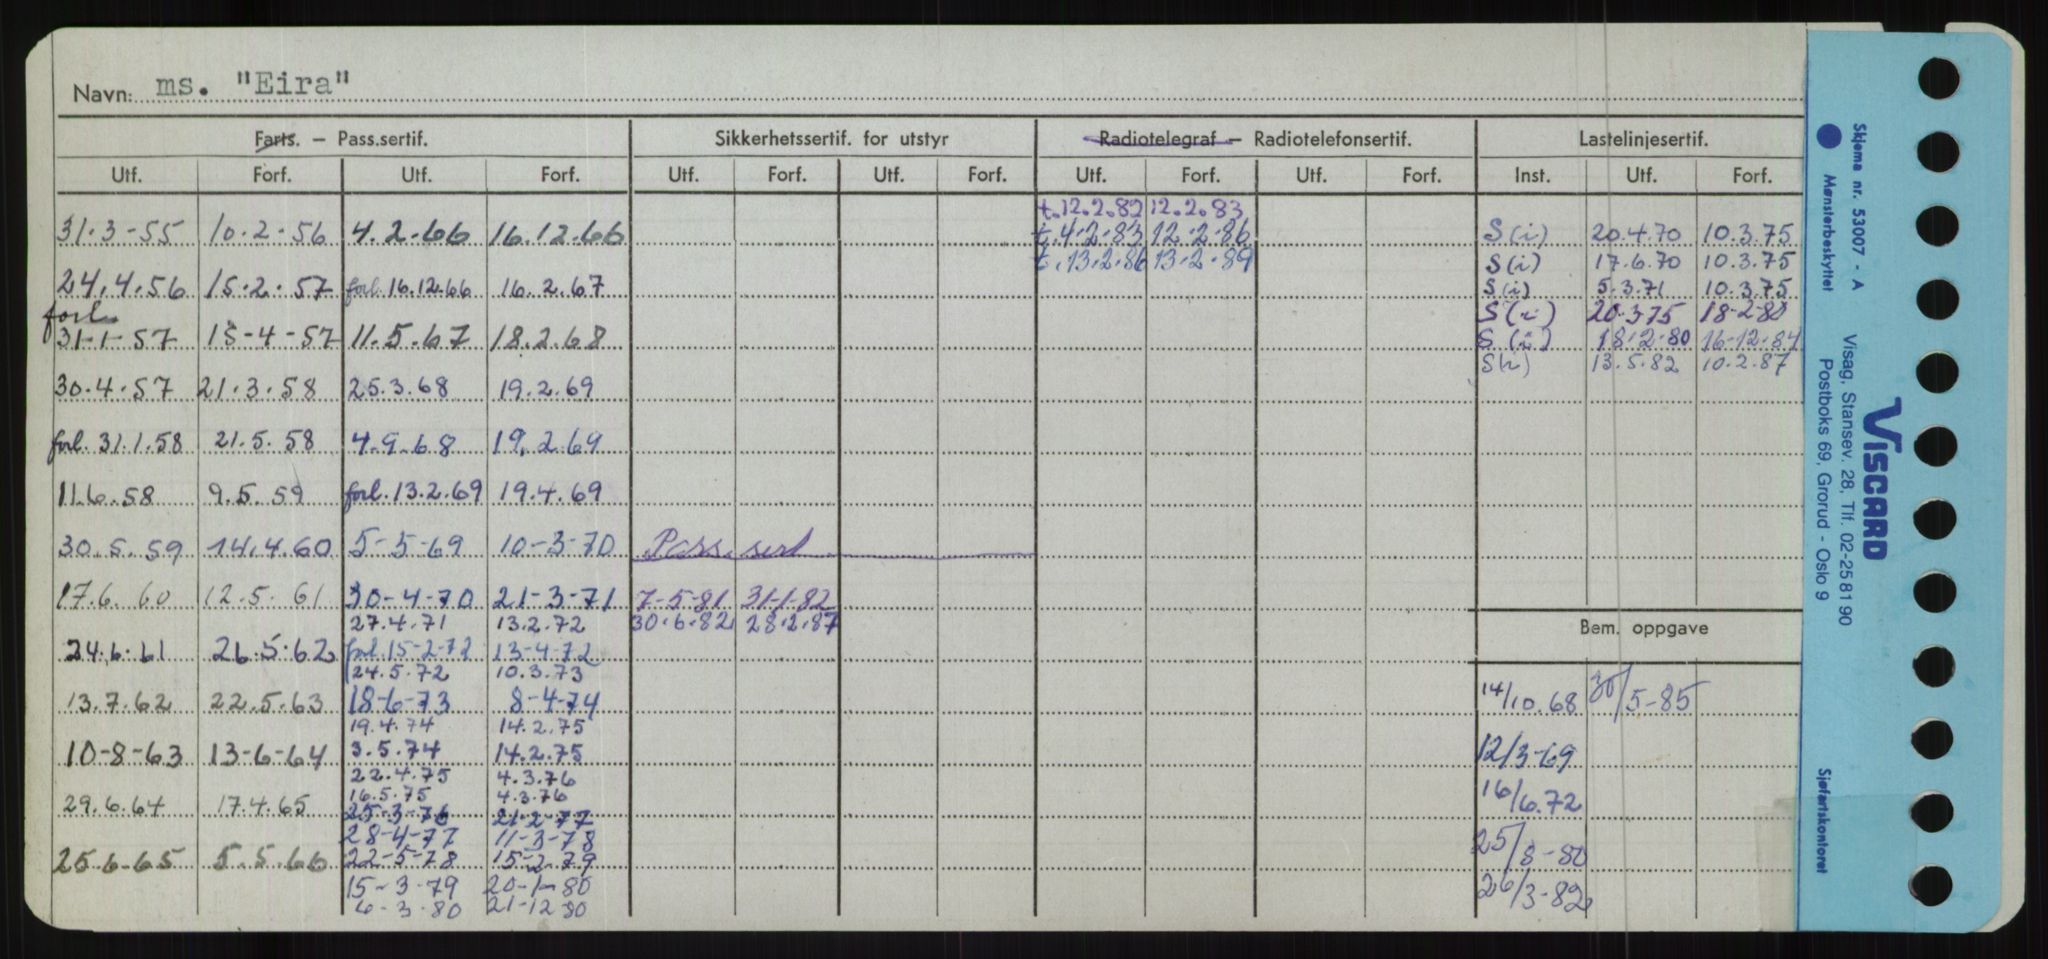 Navn: ms. "Eira"
Farts. – Pass.sertif. Sikkerhetssertif. for utstyr Radiotelegraf – Radiotelefonsertif. Lastelinjesertif.
Utf. Forf. Utf. Forf. Utf. Forf. Utf. Forf. Utf. Forf. Utf. Forf. Inst. Utf. Forf.
t.12.2.82 12.2.83
31.3-55 10.2-56 4.2.66 16.12.66 t.4.2.83 12.2.86 S(i) 20.4.70 10.3.75
t.13.2.86 13.2.89 S(i) 17.6.70 10.3.75
24.4.56 15.2.57 forl.16.12.66 16.2.67 S(i) 5.3.71 10.3.75
forl. S(i) 20.3.75 18-2-80
31-1-57 15-4-57 11.5.67 18.2.68 S(i) 18.2.80 16-12.84
S(i) 13.5.82 10.2.87
30.4.57 21.3.58 25.3.68 19.2.69
forl. 31.1.58 21.5.58 4.9.68 19.2.69
11.6.58 9.5.59 forl.13.2.69 19.4.69
30.5.59 14.4.60 5-5-69 10-3-70 Pass. sert
17.6.60 12.5.61 30-4-70 21-3-71 7-5-81 31-1-82
27.4.71 13.2.72 30.6.82 28.2.87
Bem. oppgave
24.6.61 26.5.62 forl.15-2-72 13-4-72
24.5.72 10.3.73
13.7.62 22.5.63 18-6-73 8-4-74 14/10.68 30/5-85
19.4.74 14.2.75
10-8-63 13-6-64 3.5.74 14.2.75 12/3-69
22.4.75 4.3.76
29.6.64 17.4.65 16.5.75 4.3.76 16/6.72
25-3-76 21-2-77
28-4-77 11-3-78
25.6.65 5.5.66 22-5-78 15-2-79 25/8-80
15-3-79 20-1-80 26/3-82
6-3-80 21-12-80
Skjema nr. 53007 - A
Mønsterbeskyttet
Visag, Stansev. 28, Tlf. 02-25 81 90
Postboks 69, Grorud - Oslo 9
VISCARD
Sjøfartskontoret